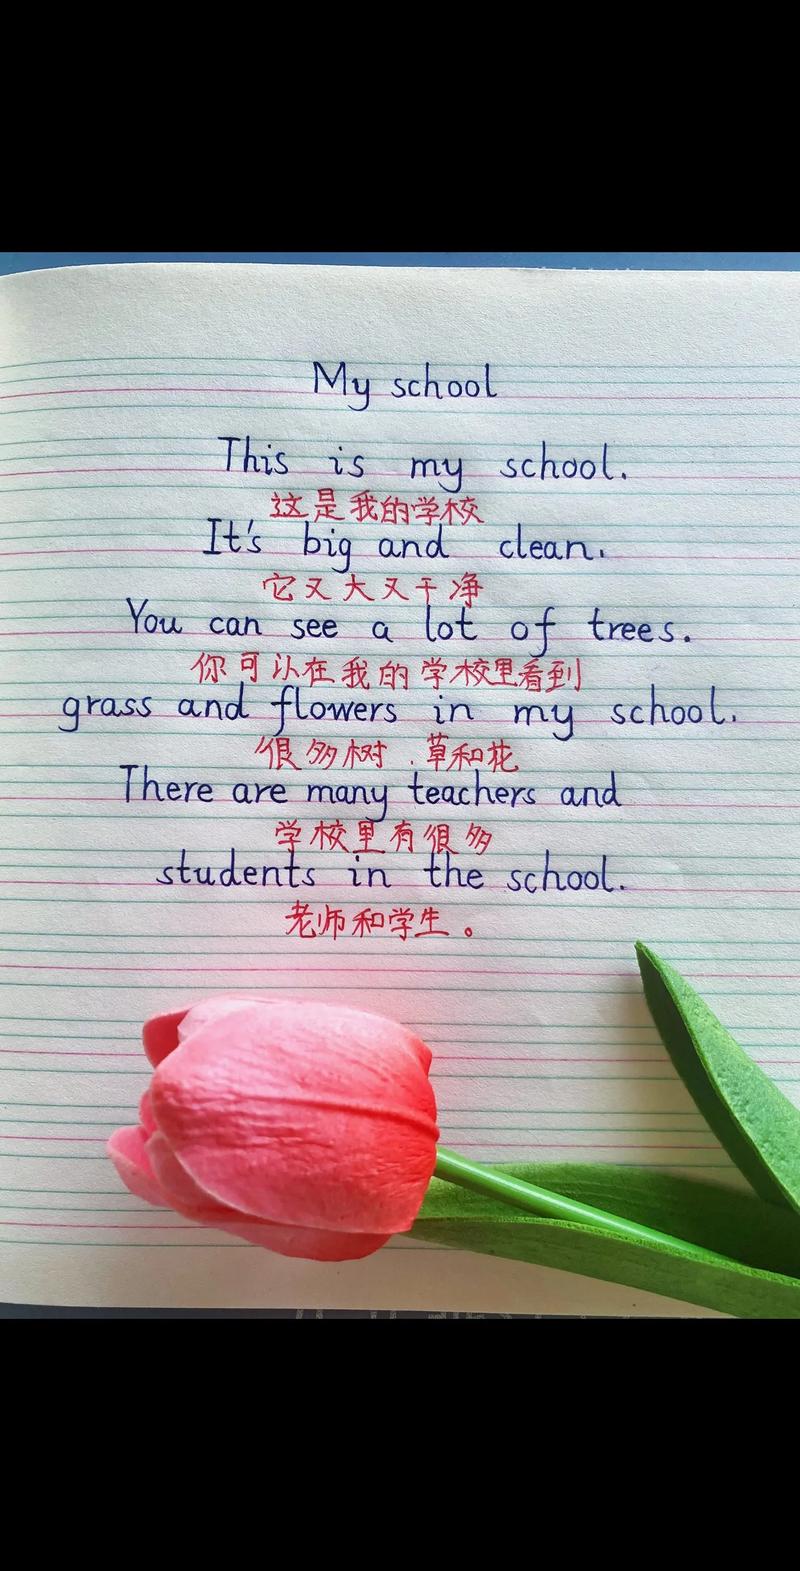 My school
This is my school.
这是我的学校
It's big and clean.
它又大又干净
You can see a lot of trees.
你可以在我的学校里看到
grass and flowers in my school.
很多树、草和花
There are many teachers and
学校里有很多
students in the school.
老师和学生。